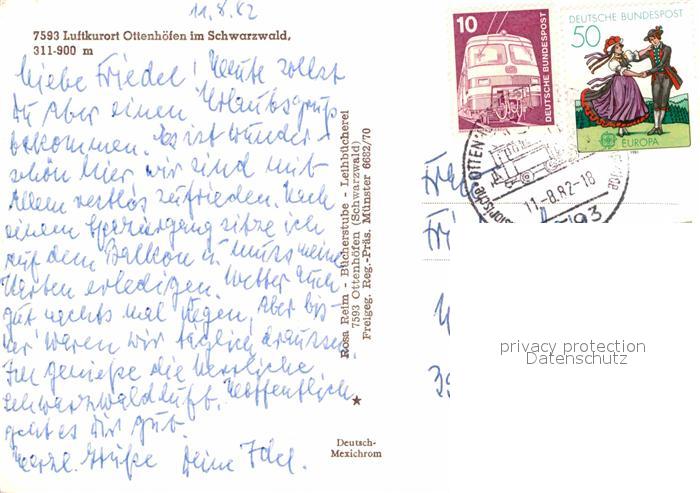 11.8.82
7593 Luftkurort Ottenhöfen im Schwarzwald,
311-900 m
Liebe Friedel! Heute sollst
Du aber einen Urlaubsgruß
bekommen. Es ist wunder-
schön hier, wir sind mit
Allem restlos zufrieden. Nach
einem Spaziergang sitze ich
auf dem Balkon u. muss meine
Karten erledigen. Wetter auch
gut nachts mal Regen, Aber bis-
her waren wir täglich draussen.
Ich genieße die herrliche
Schwarzwaldluft. Hoffentlich
geht es Dir gut.
Herzl. Grüße Deine Edel.
Rosa Reim - Bücherstube - Leihbücherei
7593 Ottenhöfen (Schwarzwald)
Freigeg. Reg.-Präs. Münster 6682/70
Deutsch-
Mexichrom
10
DEUTSCHE BUNDESPOST
DEUTSCHE BUNDESPOST
50
EUROPA
1981
11.-8.82-18
7593
Fr
privacy protection
Datenschutz